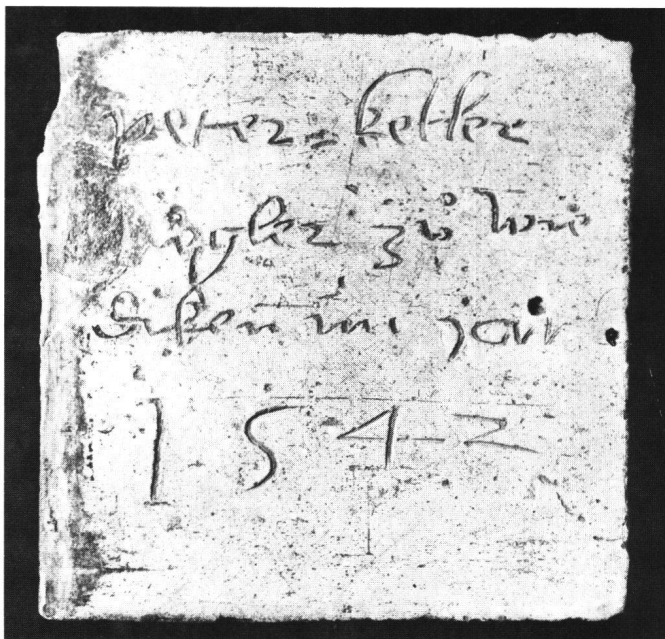 peter keller
ziegler zů wie
diken im jar
1542